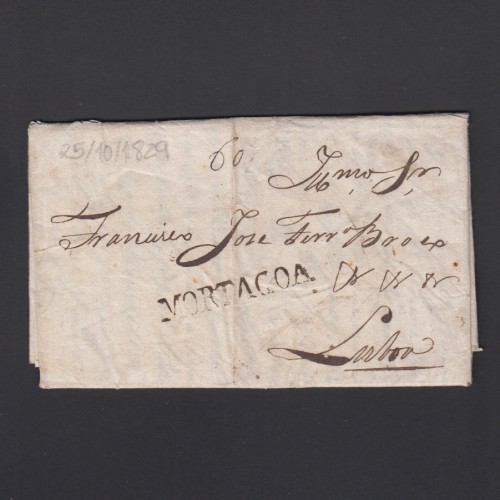 25/10/1829
60
Illmo. Sr.
Francisco Jose Ferra Broes
MORTAGOA
Lisboa